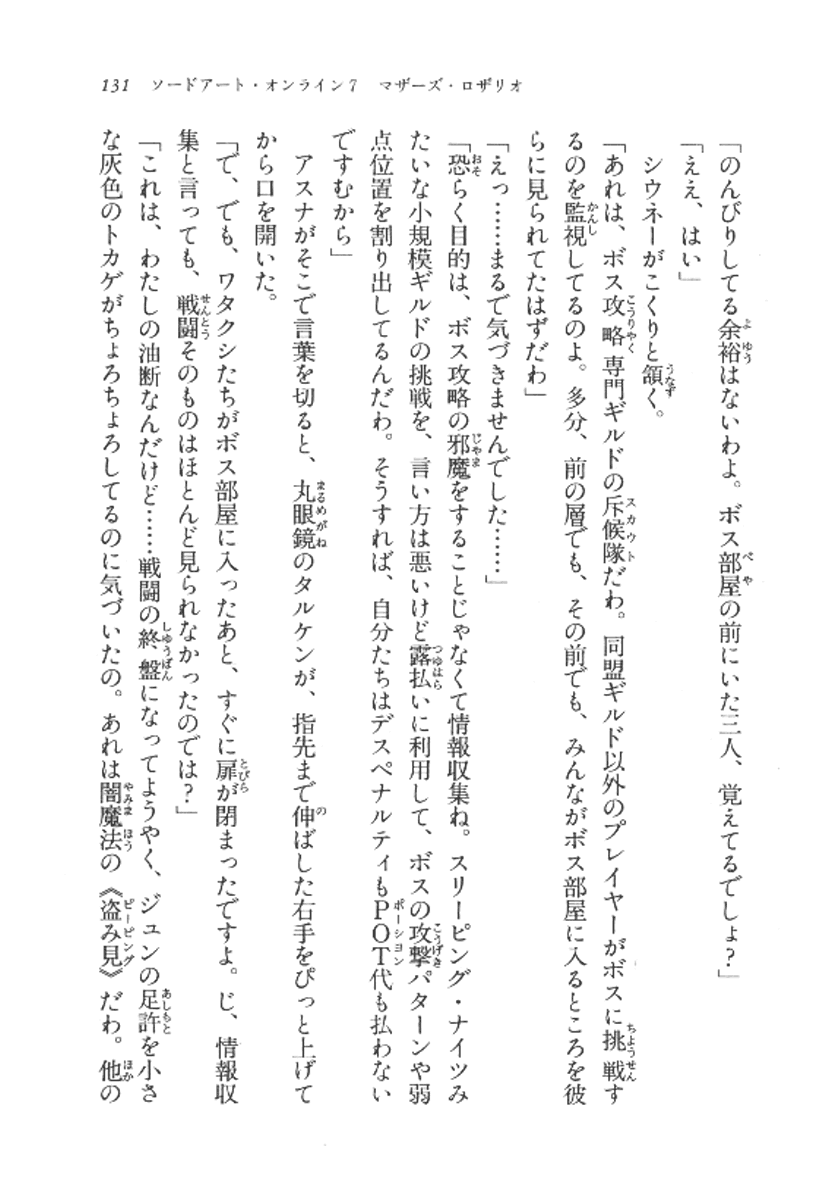 131　ソードアート・オンライン7　マザーズ・ロザリオ
「のんびりしてる余裕はないわよ。ボス部屋の前にいた三人、覚えてるでしょ？」
「ええ、はい」
　シウネーがこくりと頷く。
「あれは、ボス攻略専門ギルドの斥候隊だわ。同盟ギルド以外のプレイヤーがボスに挑戦す
るのを監視してるのよ。多分、前の層でも、その前でも、みんながボス部屋に入るところを彼
らに見られてたはずだわ」
「えっ……まるで気づきませんでした……」
「恐らく目的は、ボス攻略の邪魔をすることじゃなくて情報収集ね。スリーピング・ナイツみ
たいな小規模ギルドの挑戦を、言い方は悪いけど露払いに利用して、ボスの攻撃パターンや弱
点位置を割り出してるんだわ。そうすれば、自分たちはデスペナルティもPOT代も払わない
ですむから」
　アスナがそこで言葉を切ると、丸眼鏡のタルケンが、指先まで伸ばした右手をぴっと上げて
から口を開いた。
「で、でも、ワタクシたちがボス部屋に入ったあと、すぐに扉が閉まったですよ。じ、情報収
集と言っても、戦闘そのものはほとんど見られなかったのでは？」
「これは、わたしの油断なんだけど……戦闘の終盤になってようやく、ジュンの足許を小さ
な灰色のトカゲがちょろちょろしてるのに気づいたの。あれは闇魔法の《盗み見》だわ。他の